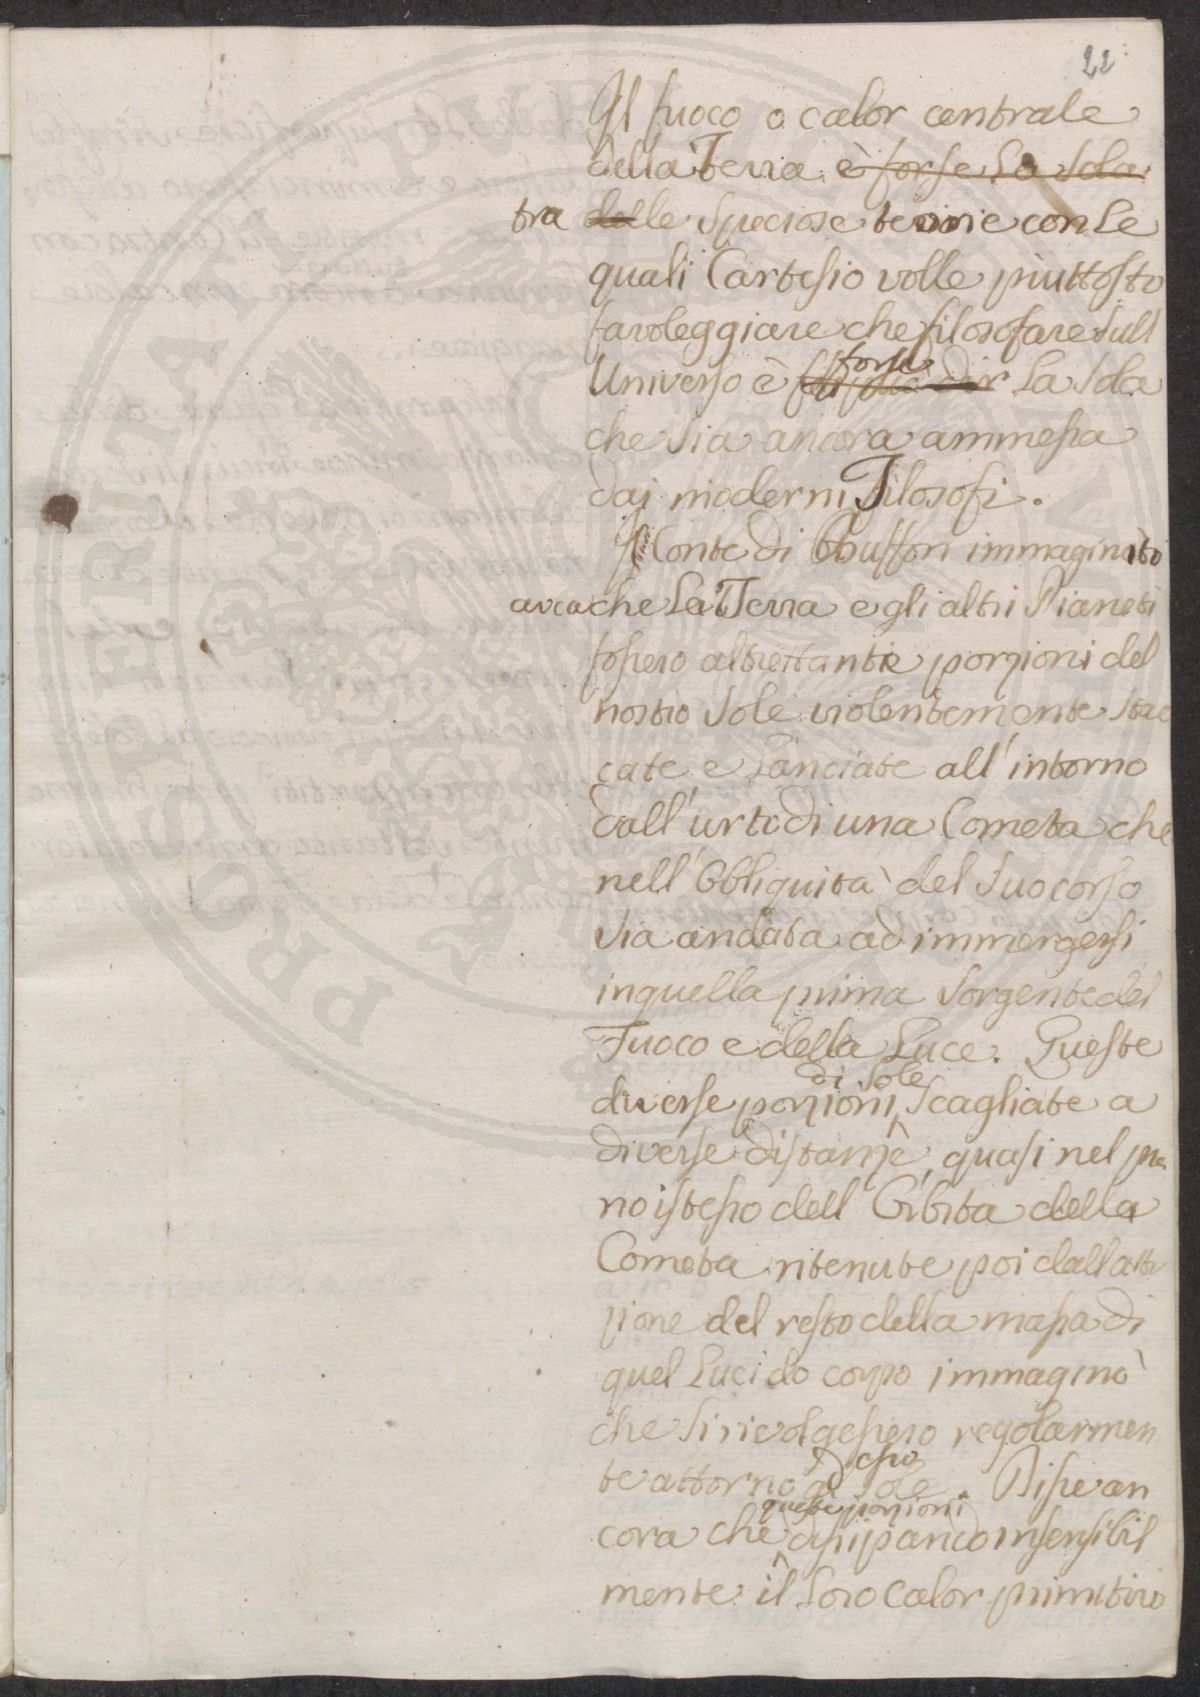 22
Il fuoco o calor centrale
della Terra è forse la sola
tra delle speciose teorie con le
quali Cartesio volle piuttosto
favoleggiare che filosofare sull
Universo è forse la sola
che sia ancora ammessa
dai moderni Filosofi.
Il Conte di Buffon immaginato
avea che la Terra e gli altri Pianeti
fossero altrettante porzioni del
nostro Sole violentemente stac
cate e lanciate all'intorno
dall'urto di una Cometa che
nell'Obliquità del suo corso
sia andata ad immergersi
in quella prima sorgente del
Fuoco e della Luce. Queste
diverse porzioni di Sole scagliate a
diverse distanze, quasi nel pia
no istesso dell'Orbita della
Cometa ritenute poi dall attra
zione del resto della massa di
quel Lucido corpo immaginò
che si rivolgessero regolarmen
te attorno ad esso Sole. Disse an
cora che queste porzioni dissipando insensibil
mente il loro Calor primitivo
PROSPERITATI PUBLICAE